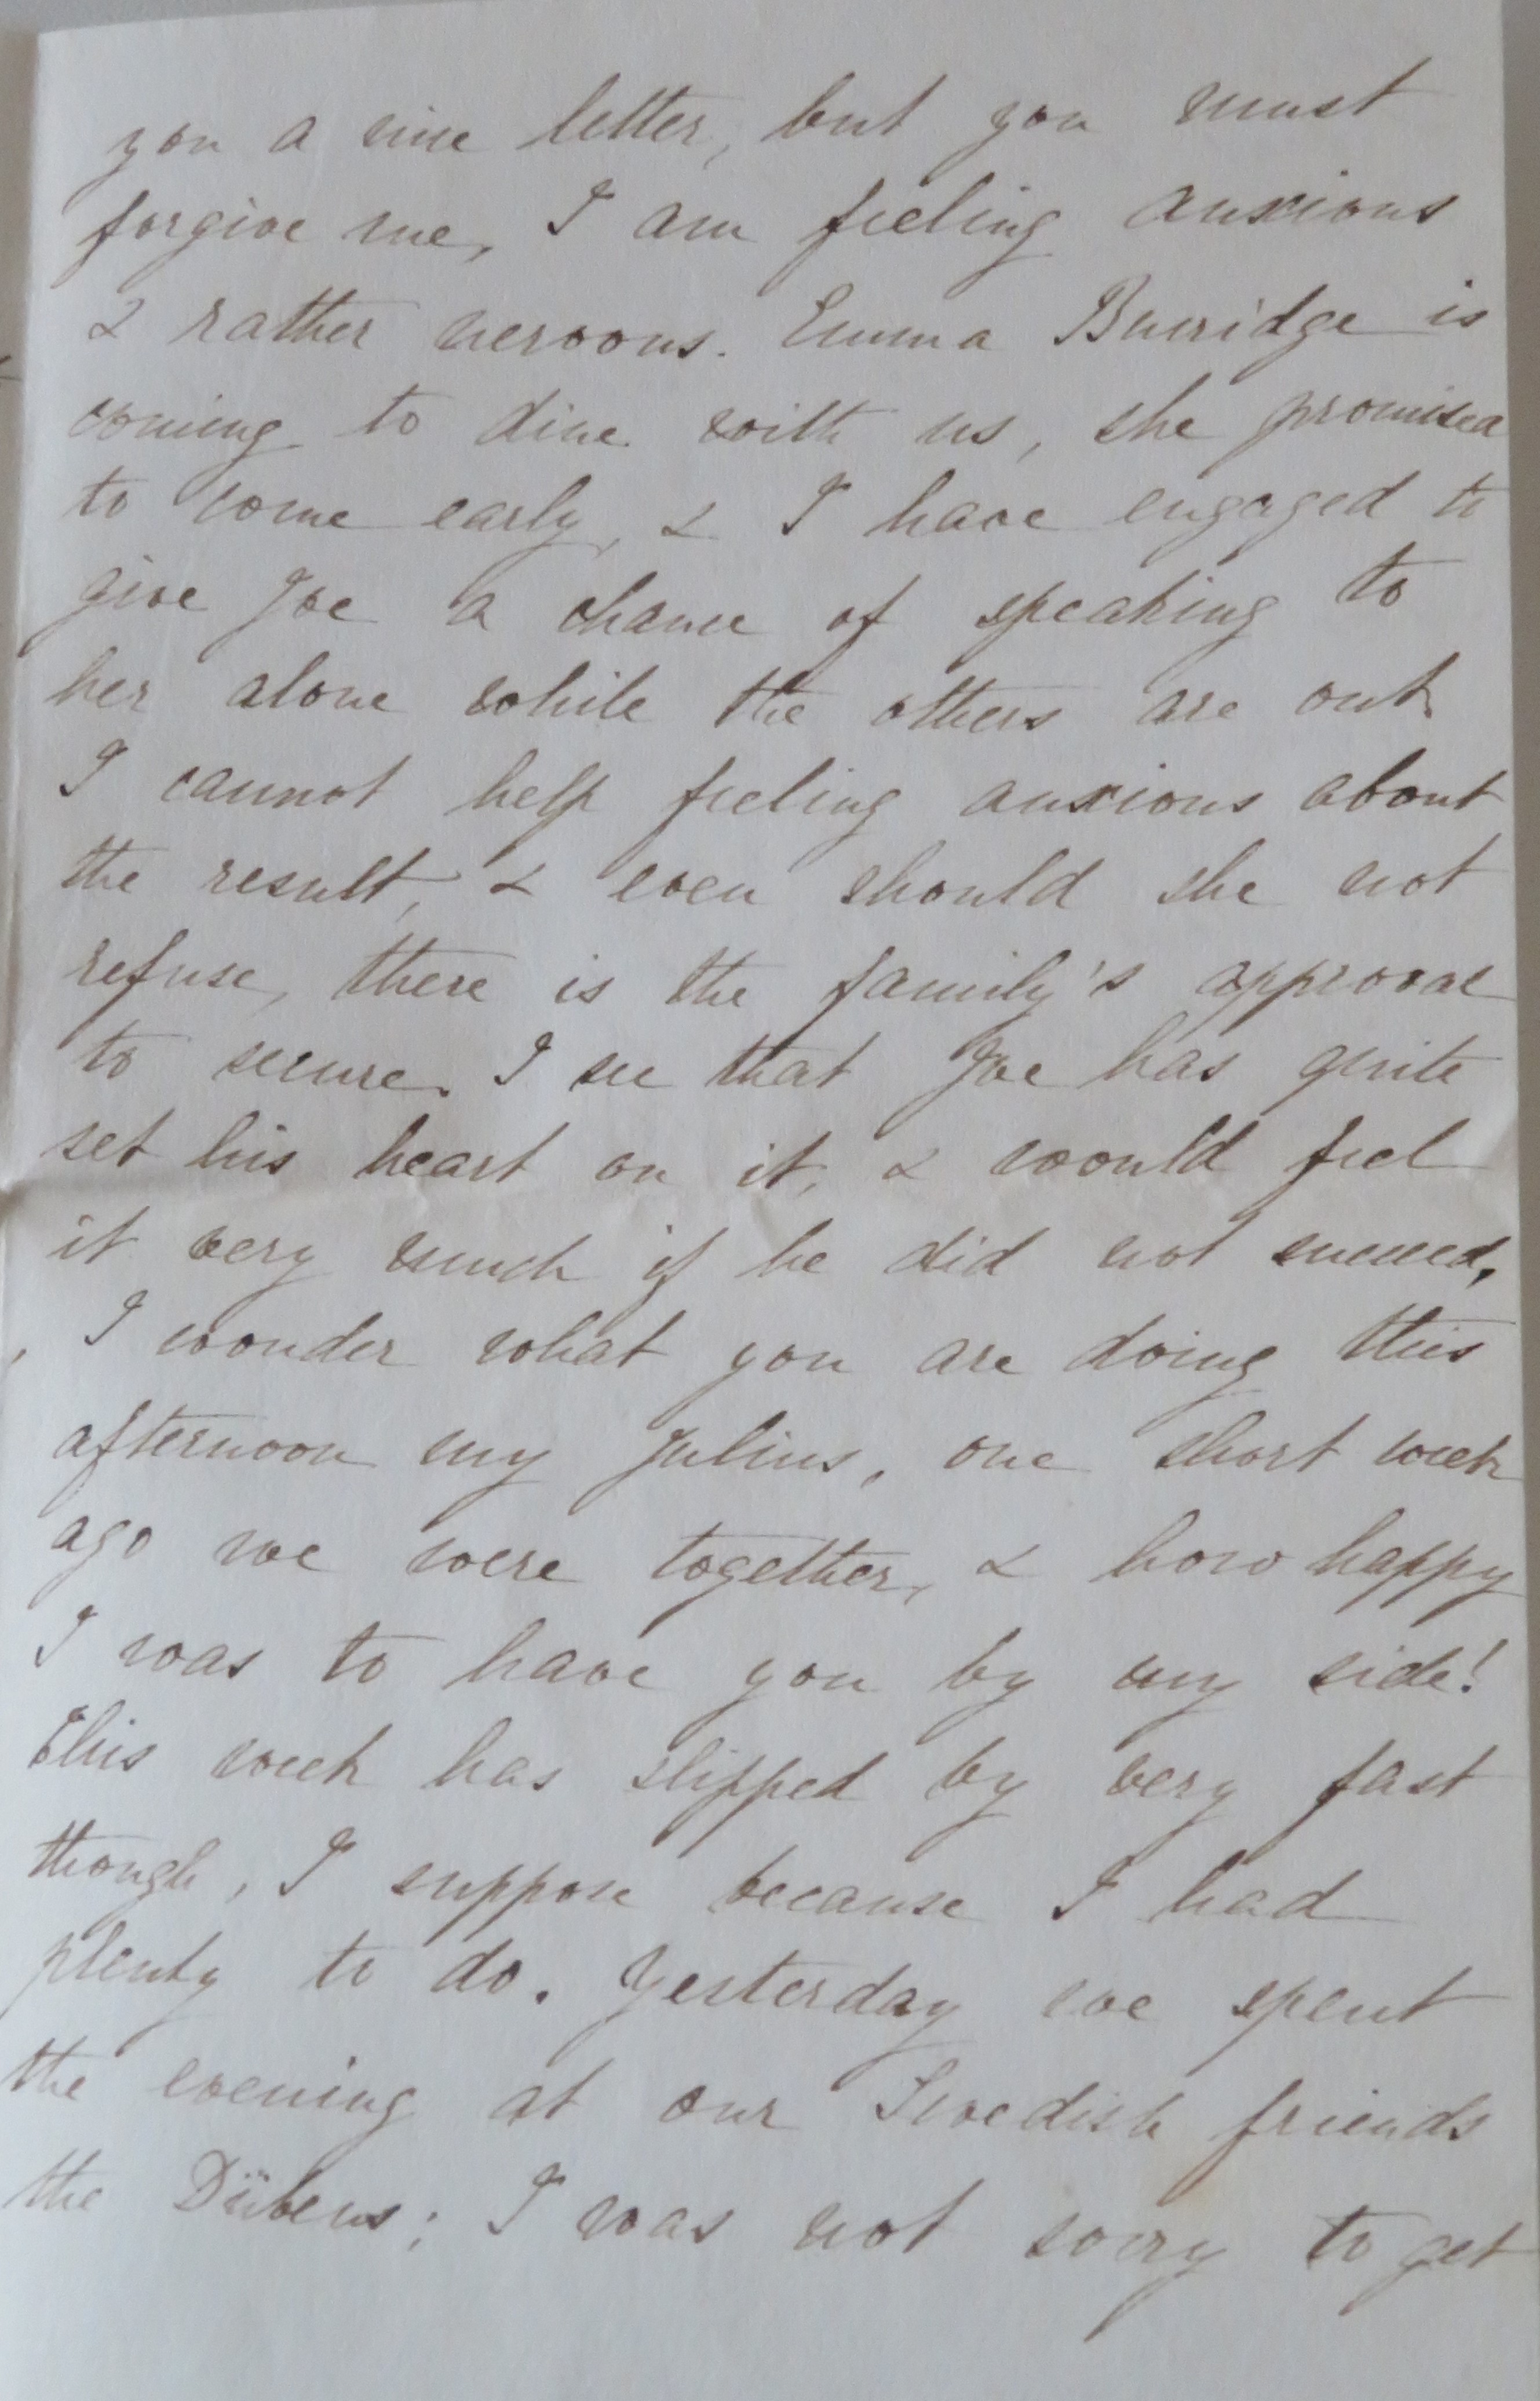 you a nice letter, but you must
forgive me, I am feeling anxious
& rather nervous. Emma Burridge is
coming to dine with us, she promised
to come early, & I have engaged to
give Joe a chance of speaking to
her alone while the others are out.
I cannot help feeling anxious about
the result, & even should she not
refuse, there is the family's approval
to secure. I see that Joe has quite
set his heart on it, & would feel
it very much if he did not succeed.
I wonder what you are doing this
afternoon my Julius, one short week
ago we were together, & how happy
I was to have you by my side!
This week has slipped by very fast
though, I suppose because I had
plenty to do. Yesterday we spent
the evening at our Swedish friends
the Dübens; I was not sorry to get